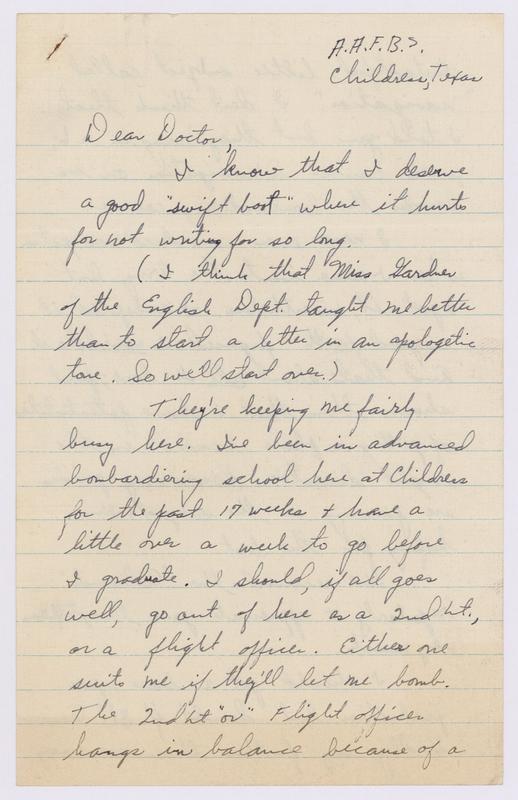 A.A.F.B.S.
Childress, Texas
Dear Doctor,
I know that I deserve
a good "swift boot" where it hurts
for not writing for so long.
(I think that Miss Gardner
of the English Dept. taught me better
than to start a letter in an apologetic
tone. So we'll start over.)
They're keeping me fairly
busy here. I've been in advanced
bombardiering school here at Childress
for the past 17 weeks + have a
little over a week to go before
I graduate. I should, if all goes
well, go out of here as a 2nd Lt.,
or a flight officer. Either one
suits me if they'll let me bomb.
The 2nd Lt "or" Flight officer
hangs in balance because of a